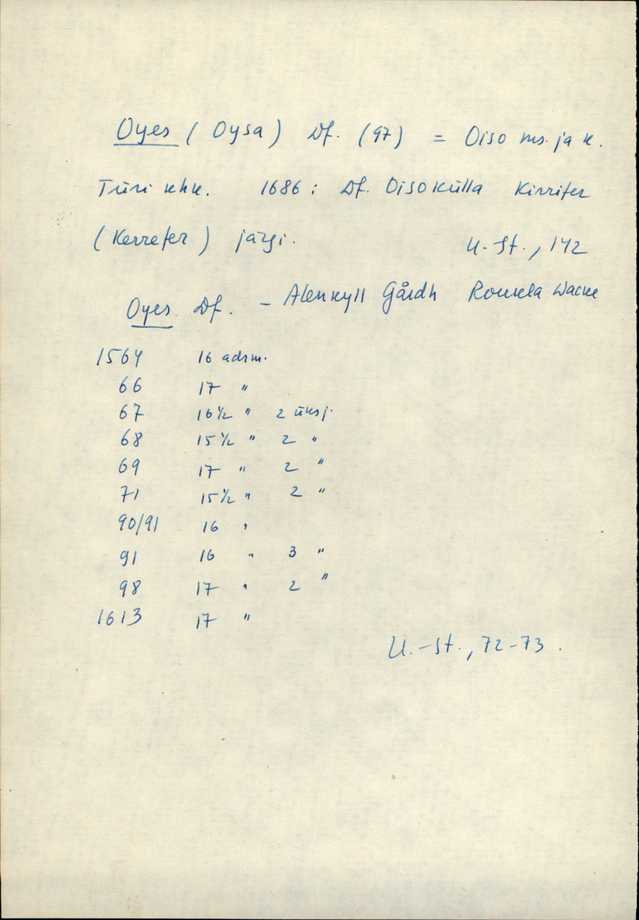 Oyes (Oysa) Df. (97) = Oiso ms. ja k.
Türi khk. 1686: Df. Oisokülla Kirrifer
(Kerrefer) järgi. U.-St., 142
Oyes Df. - Alenkyll Gårdh Roukela Wacke
1564 16 adrm.
66 17 "
67 16 1/2 " 2 üksj.
68 15 1/2 " 2 "
69 17 " 2 "
71 15 1/2 " 2 "
90/91 16 "
91 16 " 3 "
98 17 " 2 "
1613 17 "
U.-St., 72-73.